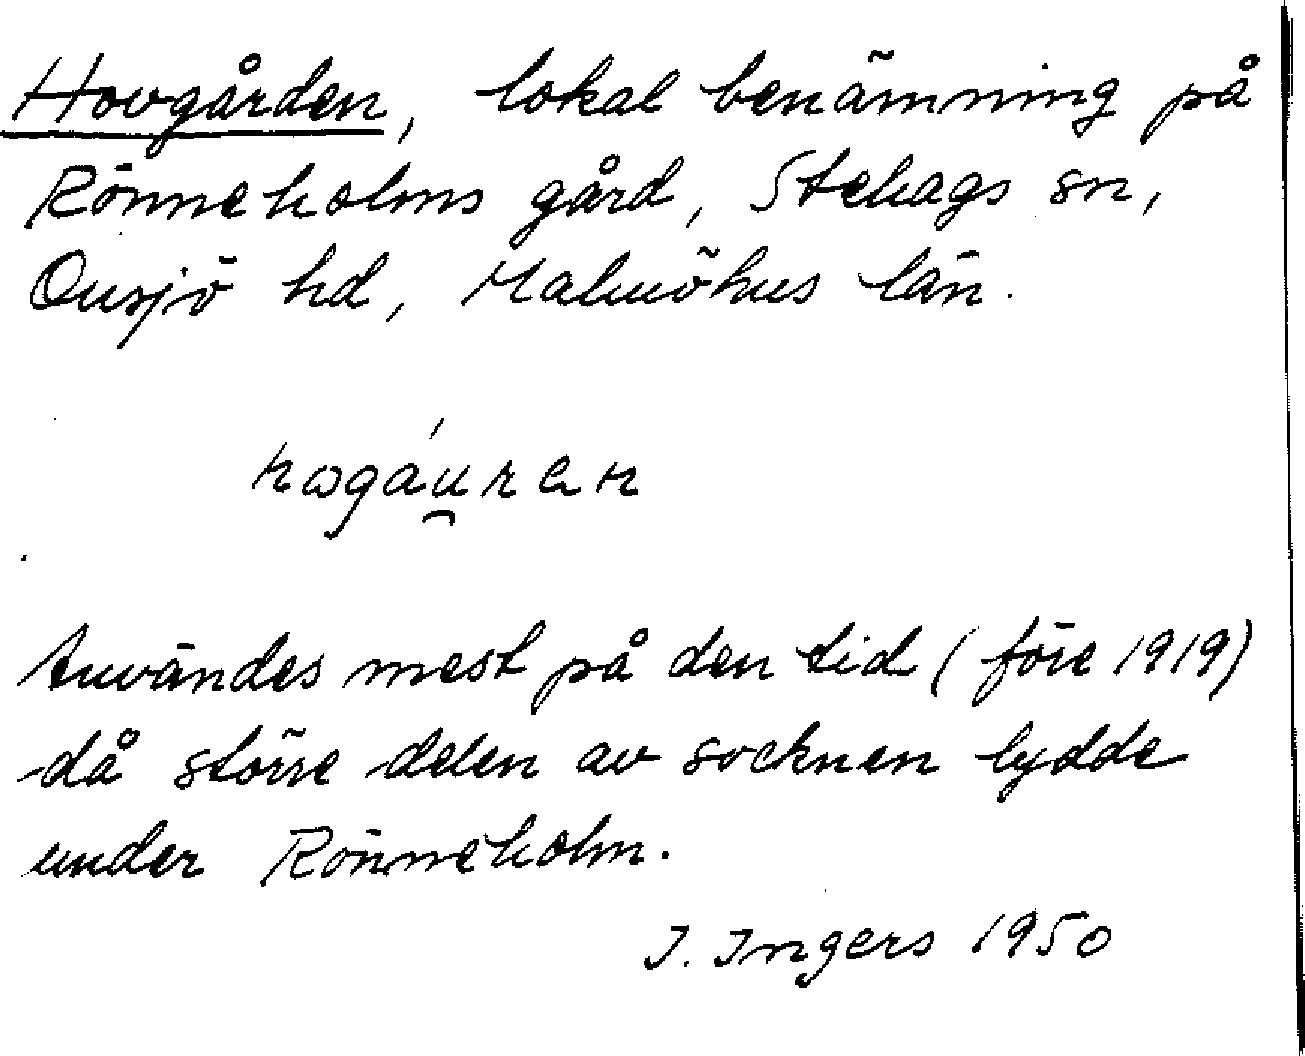 Hovgården, lokal benämning på
Rönneholms gård, Stehags sn,
Onsjö hd, Malmöhus län.
Användes mest på den tid (före 1919)
då större delen av socknen lydde
under Rönneholm.
I. Ingers 1950